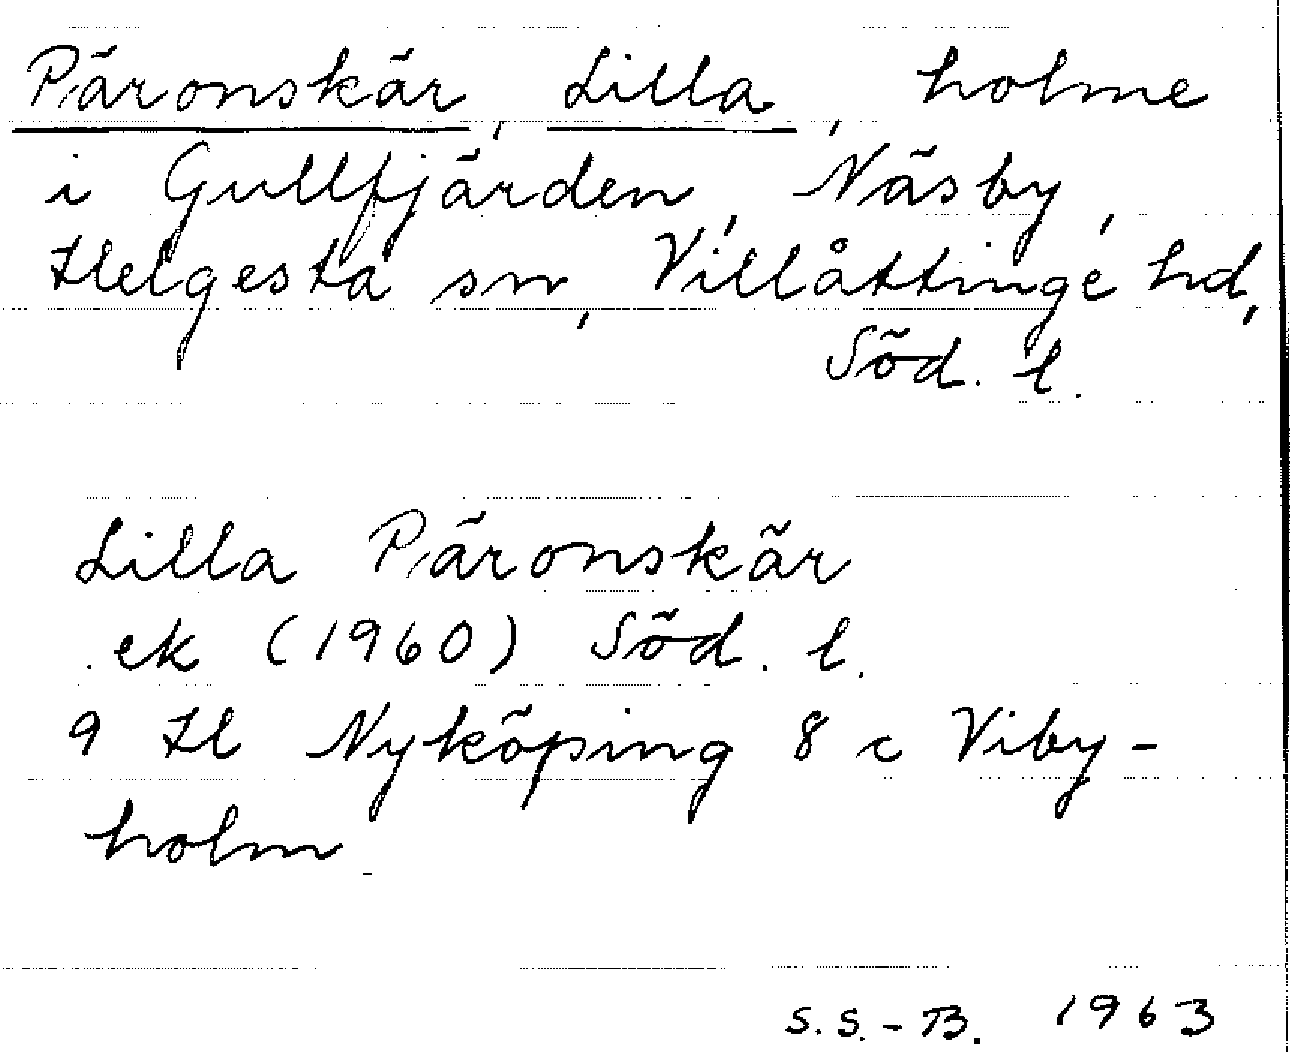 Päronskär, Lilla, holme
i Gullfjärden, Näsby,
Helgesta sn, Villåttinge hd,
Söd. l.
Lilla Päronskär
ek (1960) Söd. l.
9 H Nyköping 8 c Viby-
holm
S.S.-B. 1963